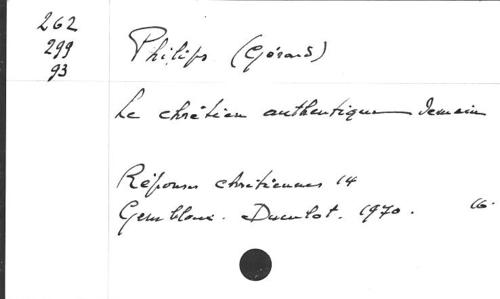 262
299
93
Philips (Gérard)
Le chrétien authentique demain
Réponses chrétiennes 14
Gembloux. Duculot. 1970. 16.